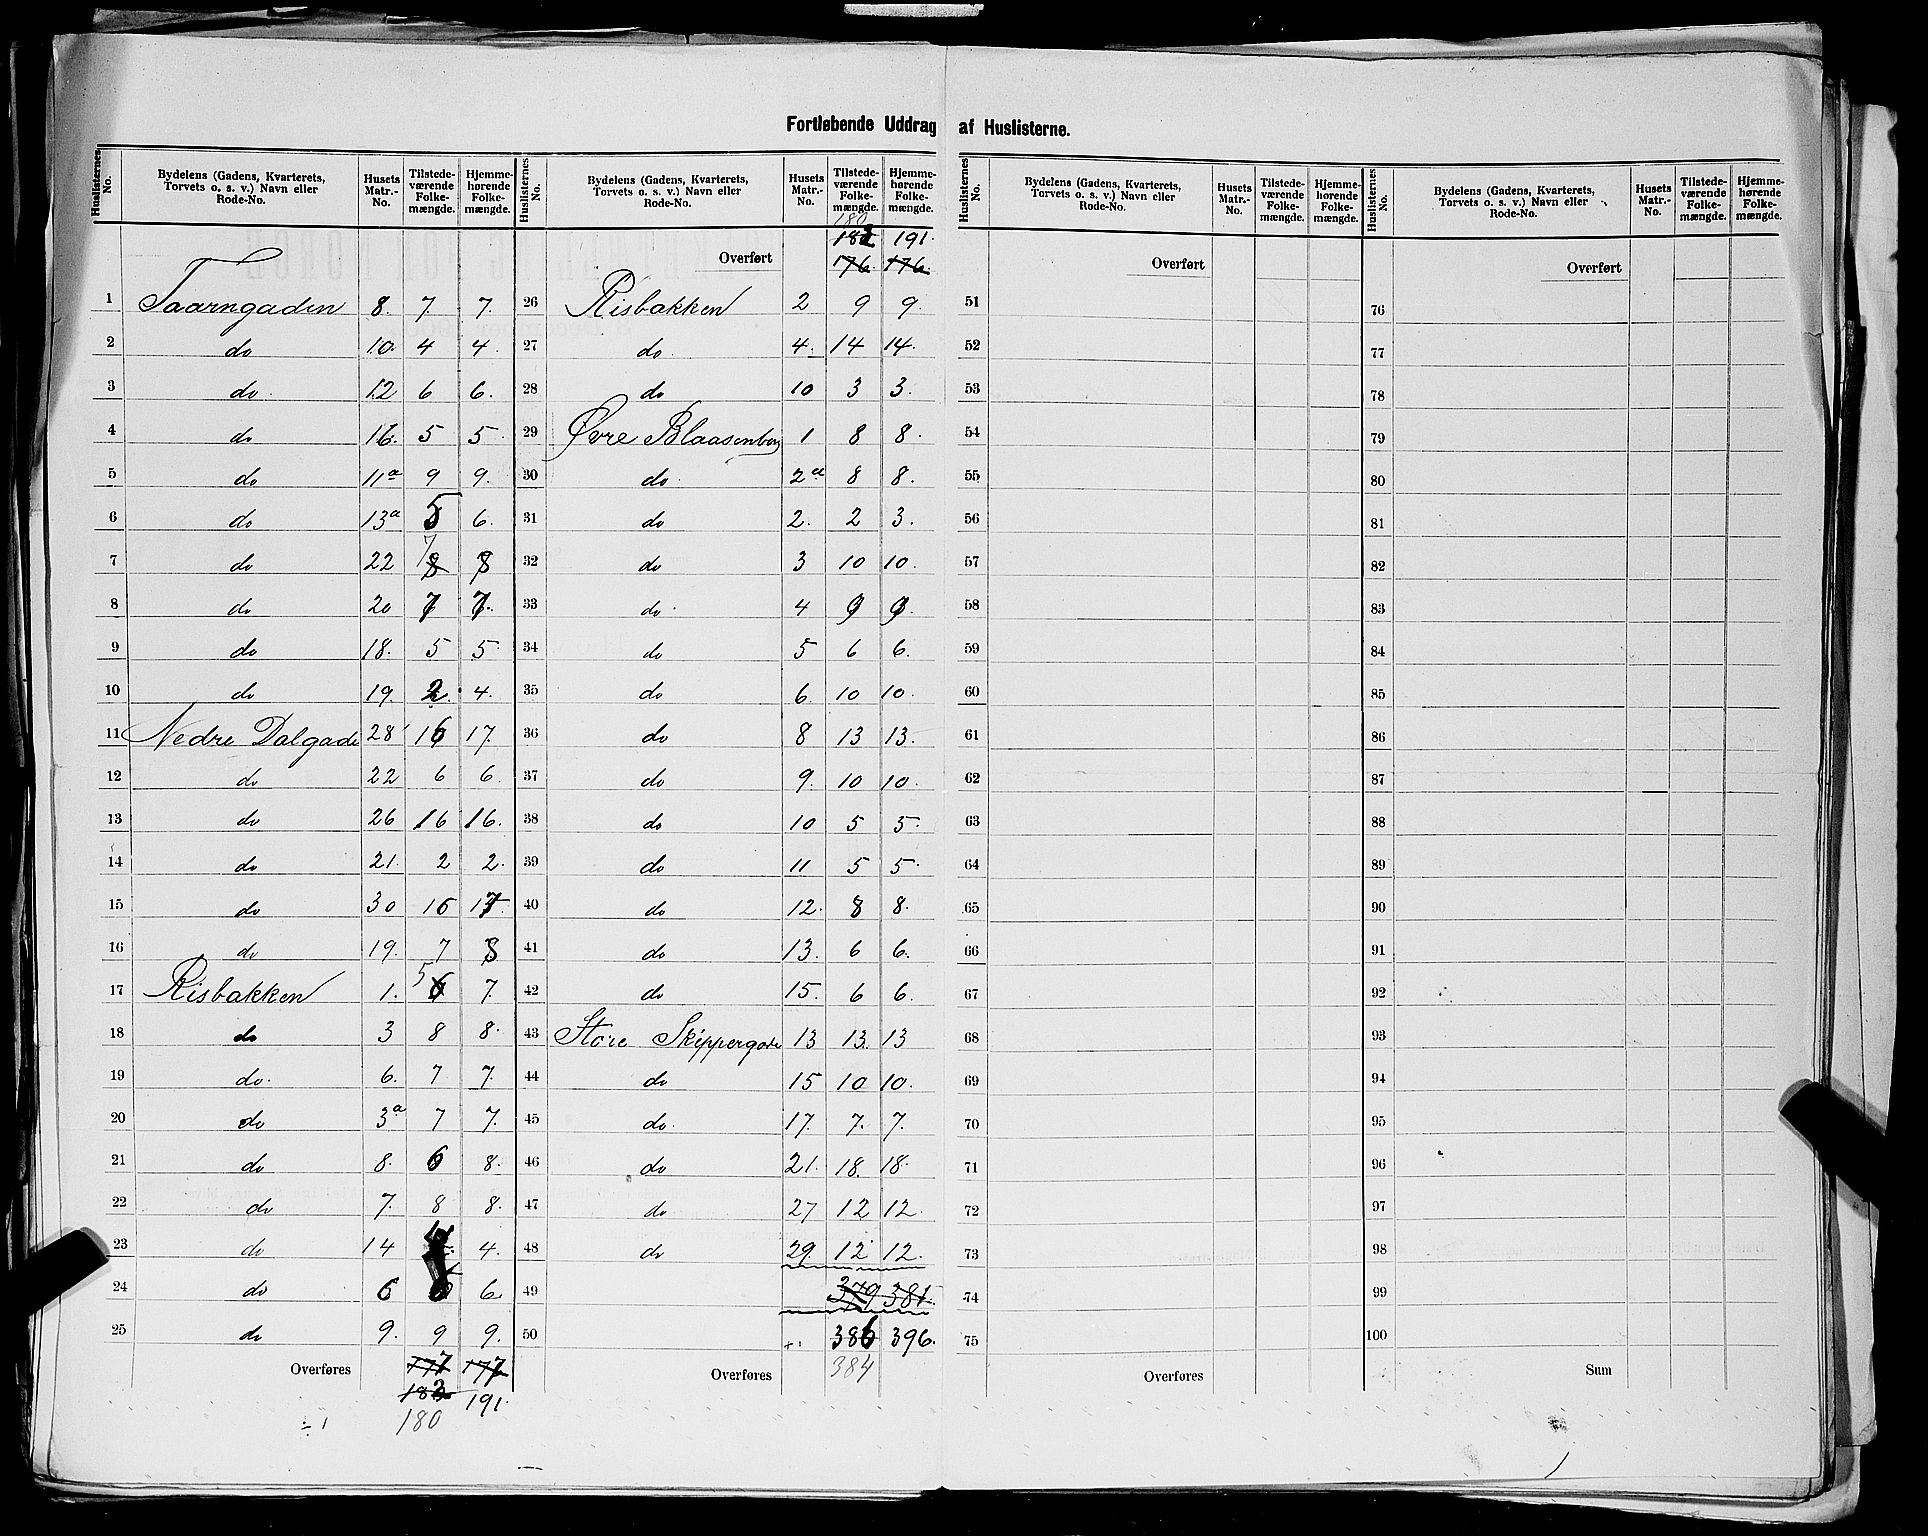 Fortløbende Uddrag af Huslisterne.
Huslisternes No. | Bydelens (Gadens, Kvarterets, Torvets o. s. v.) Navn eller Rode-No. | Husets Matr.-No. | Tilstede-værende Folke-mængde. | Hjemme-hørende Folke-mængde.
1 Taarngaden 8. 7. 7.
2 do 10. 4 4.
3 do 12 6 6.
4 do 16. 5 5.
5 do 11a 9 9.
6 do 13a 5 6.
7 do 22 7 8 8
8 do 20 7 7.
9 do 18. 5 5.
10 do 19. 2. 4.
11 Nedre Dalgade 28 16 17.
12 do 22 6 6.
13 do 26 16 16.
14 do 21. 2 2.
15 do 30 16 17.
16 do 19. 7 8
17 Risbakken 1. 5 6 7.
18 do 3 8 8.
19 do. 6. 7 7.
20 do 3a 7 7.
21 do 8. 6 8.
22 do 7. 8 8.
23 do 14 4 4.
24 do 6 6.
25 do 9. 9 9.
Overføres 177 177
183 191.
180
÷ 1
Huslisternes No. | Bydelens (Gadens, Kvarterets, Torvets o. s. v.) Navn eller Rode-No. | Husets Matr.-No. | Tilstede-værende Folke-mængde. | Hjemme-hørende Folke-mængde.
180
183 191.
Overført 176. 176.
26 Risbakken 2 9 9.
27 do. 4. 14 14.
28 do 10 3 3.
29 Øvre Blaasenborg 1 8 8.
30 do. 2a 8 8.
31 do 2. 2 3.
32 do 3 10 10.
33 do. 4 9 9.
34 do 5 6 6.
35 do 6 10 10.
36 do 8 13 13.
37 do 9. 10 10.
38 do 10 5 5.
39 do 11 5 5.
40 do 12. 8 8.
41 do 13. 6 6.
42 do 15. 6 6.
43 Store Skippergade 13 13. 13
44 do 15 10 10.
45 do. 17. 7. 7.
46 do 21. 18. 18.
47 do 27 12 12.
48 do 29. 12 12.
49 379 381.
50 386 396.
Overføres 384
Huslisternes No. | Bydelens (Gadens, Kvarterets, Torvets o. s. v.) Navn eller Rode-No. | Husets Matr.-No. | Tilstede-værende Folke-mængde. | Hjemme-hørende Folke-mængde.
Overført
51
52
53
54
55
56
57
58
59
60
61
62
63
64
65
66
67
68
69
70
71
72
73
74
75
Overføres
Huslisternes No. | Bydelens (Gadens, Kvarterets, Torvets o. s. v.) Navn eller Rode-No. | Husets Matr.-No. | Tilstede-værende Folke-mængde. | Hjemme-hørende Folke-mængde.
Overført
76
77
78
79
80
81
82
83
84
85
86
87
88
89
90
91
92
93
94
95
96
97
98
99
100
Sum